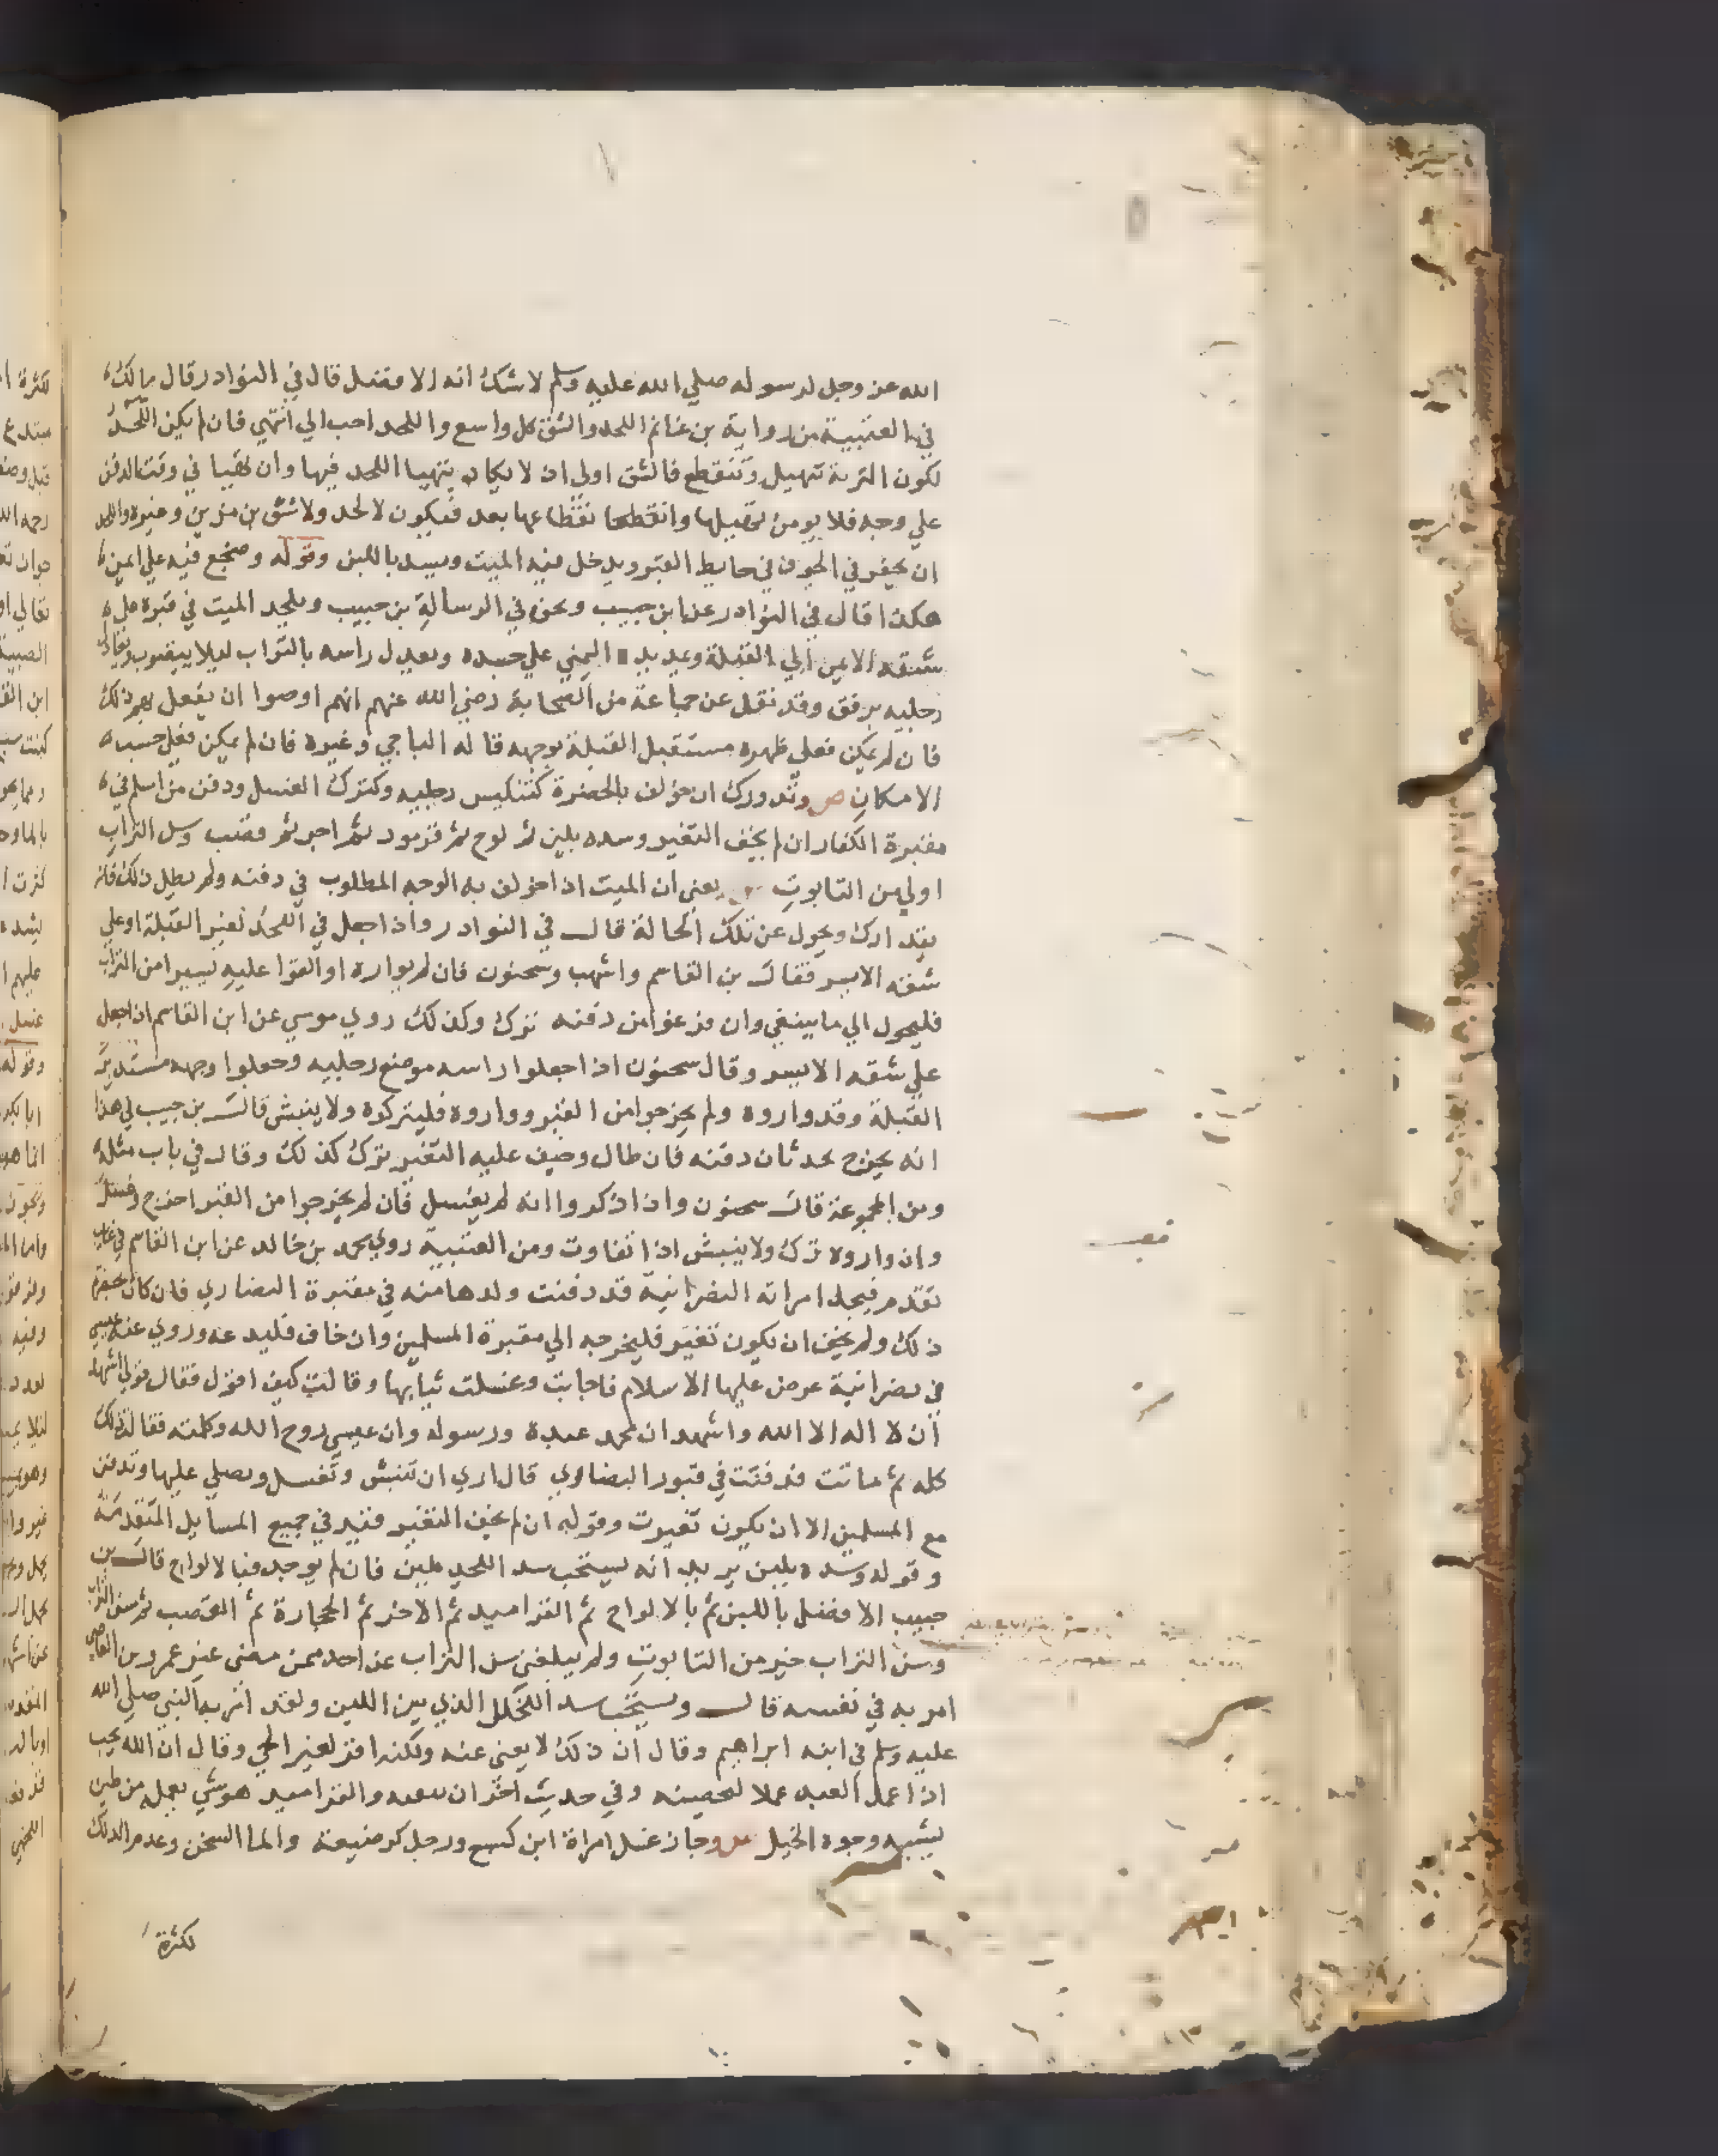 الله عز وجل لرسوله صلي الله عليه وسلم لا شك انه الافضل قال في النوادر قال مالك
في العتبية من رواية بن غانم اللحد والشق كل واسع واللحد احب الي انتهي فان لم يكن اللحد
لكون التربة تتهيل وتتقطع فالشق اولي اذ لا يكاد يتهيا اللحد فيها وان تهيا في وقت الدفن
علي وجه فلا يومن تهيلها وانقطاعها بعد فيكون لا لحد ولا شق بن مزين وغيره واللحد
ان يحفر في الجرف في حايط القبر ويدخل فيه الميت ويسد باللبن وقوله وضجع فيه علي ايمن
هكذا قال في النوادر عن ابن حبيب ونحوه في الرسالة بن حبيب ويلحد الميت في قبره علي
شقه الايمن الي القبلة وتمد يده اليمني علي جسده ويعدل راسه بالتراب ليلا يتصوب
رجليه برفق وقد نقل عن جماعة من الصحابة رضي الله عنهم انهم اوصوا ان يفعل بهم ذلك
فان لم يمكن فعلي ظهره مستقبل القبلة بوجهه قاله الباجي وغيره فان لم يمكن فعلي حسب
الامكان ص وتدورك ان خولف بالحضرة كتنكيس رجليه وكترك الغسل ودفن من اسلم في
مقبرة الكفار ان لم يخف التغير وسده بلبن ثم لوح ثم قرمود ثم اجر ثم قصب وسن التراب
اولي من التابوت يعني ان الميت اذا خولف به الوجه المطلوب في دفنه ولم يطل ذلك فانه
يتدارك ويحول عن تلك الحالة قال في النوادر واذا جعل في اللحد لغير القبلة او علي
شقه الايسر فقال بن القاسم واشهب وسحنون فان لم يواروه او القوا عليه يسيرا من التراب
فليحول الي ما ينبغي وان فرغوا من دفنه ترك وكذلك روي موسي عن ابن القاسم اذا جعل
علي شقه الايسر وقال سحنون اذا جعلوا راسه موضع رجليه وجعلوا وجهه مستدبر
القبلة وقد واروه ولم يخرجوا من القبر وواروه فليتركوه ولا ينبش قال بن حبيب في هذا
انه يخرج بحدثان دفنه فان طال وخيف عليه التغير ترك كذلك وقال في باب مثله
ومن المجموعة قال سحنون واذا ذكروا انه لم يغسل فان لم يخرجوا من القبر اخرج وغسل
وان واروه ترك ولا ينبش اذا تفاوت ومن العتبية روي محمد بن خالد عن ابن القاسم في غايب
تقدم فيجد امراته النصرانية قد دفنت ولدها منه في مقبرة النصاري فان كان بحضرة
ذلك ولم يخف ان يكون تغير فليخرجه الي مقبرة المسلمين وان خاف فليدعه وروي عنه عيسي
في نصرانية عرض عليها الاسلام فاجابت وغسلت ثيابها وقالت كيف اقول فقال قولي اشهد
ان لا اله الا الله واشهد ان محمد عبده ورسوله وان عيسي روح الله وكلمته فقالت ذلك
كله ثم ماتت فدفنت في قبور النصاري قال اري ان تنبش وتغسل ويصلي عليها وتدفن
مع المسلمين الا ان يكون تغيرت وقوله ان لم يخف التغير قيد في جميع المسايل المتقدمة
وقوله وسده بلبن يريد انه يستحب سد اللحد بلبن فان لم يوجد فبالالواح قال بن
حبيب الافضل باللبن ثم بالالواح ثم القراميد ثم الاجر ثم الحجارة ثم القصب ثم سن التراب
وسن التراب خير من التابوت ولم يبلغني سن التراب عن احد ممن مضي غير عمرو بن العاصي
امر به في نفسه قال ويستحب سد الخلل الذي بين اللبن ولقد امر به النبي صلي الله
عليه وسلم في ابنه ابراهيم وقال ان ذلك لا يغني عنه ولكنه اقر لعين الحي وقال ان الله يحب
اذا عمل العبد عملا ان وفي حديث اخر ان والقراميد هو شي يعمل من طين
يشبه وجوه الخيل ص وجاز غسل امراة ابن كسبع ورجل كرضيعة والماء السخن وعدم الدلك
لكثرة